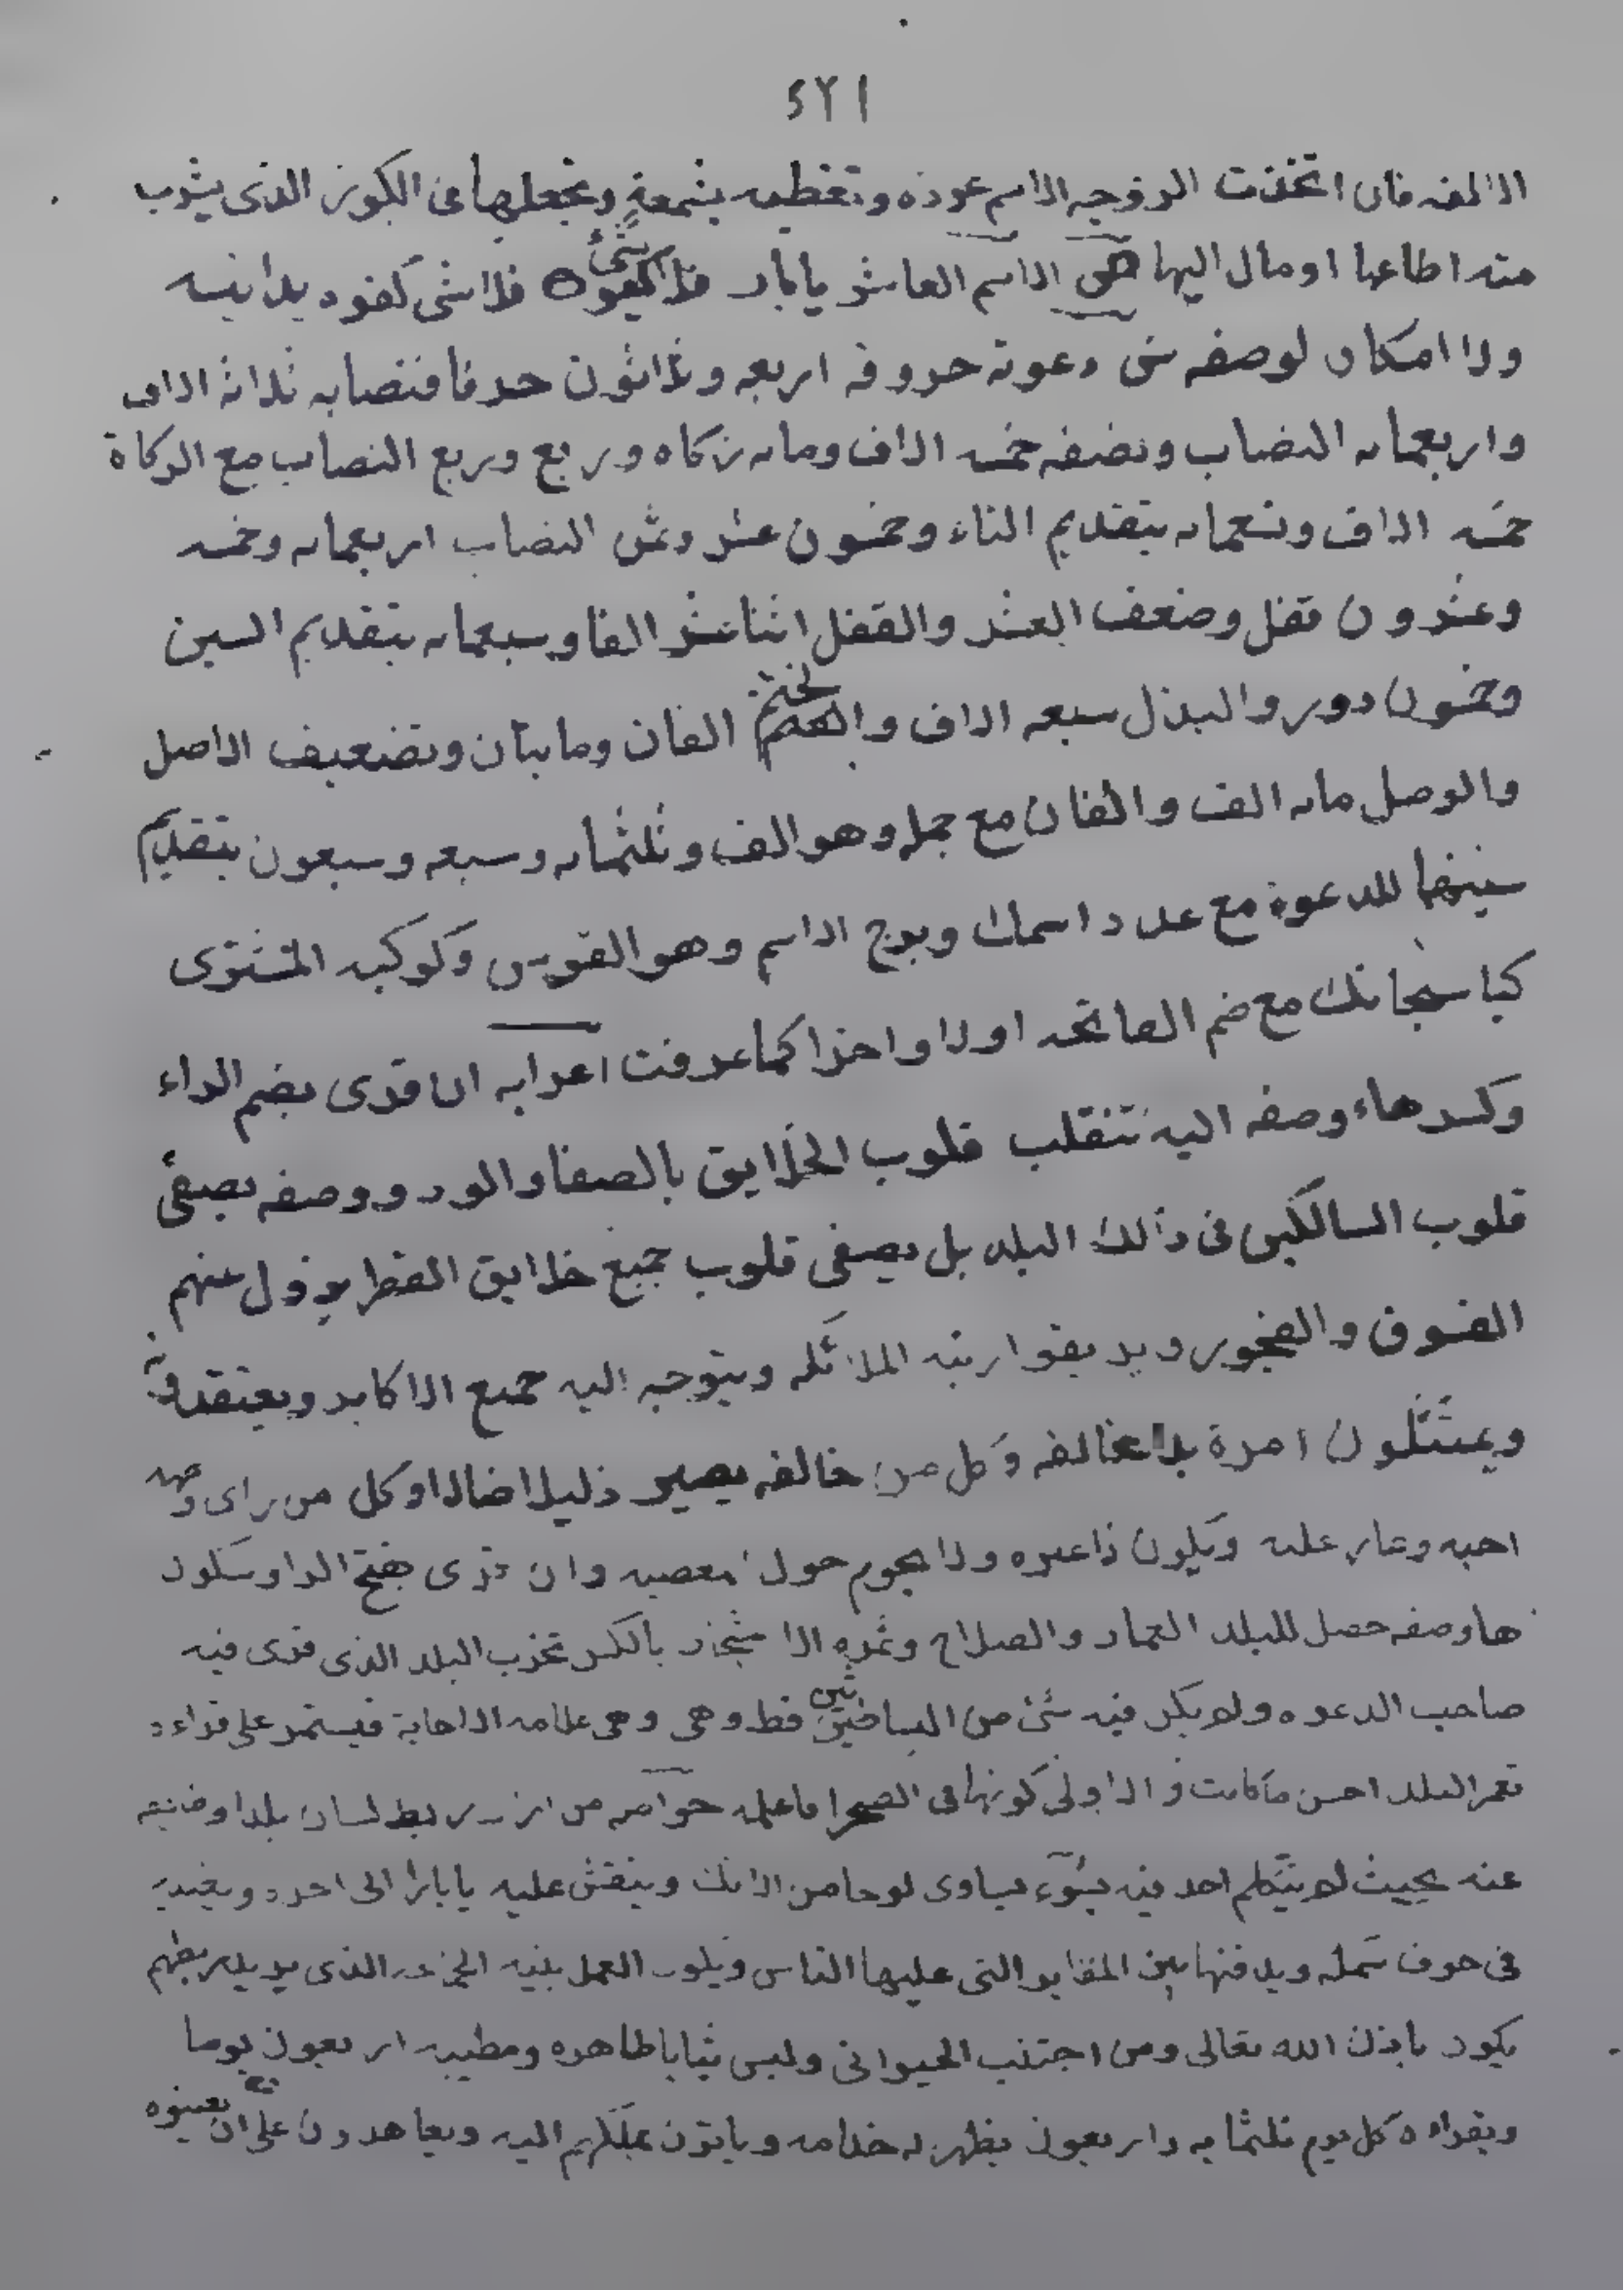 ٤٢١
الالفه فان اتخذت الزوجه الاسم عوذه وتغطيه بشمعةٍ وتجعلها فى الكوز الذى يشرب
منه اطاعها او مال اليها هى الاسم العاشر يا بار فلا شئ كفوه فلا شى كفوه يدانيه
ولا امكان لوصفه شى دعوته حروفه اربعه وثلاثون حرفا فنصابه ثلاثة الاف
واربعمائه النصاب ونصفه خمسه الاف ومائه زكاه وربع وربع النصاب مع الزكاة
خمسه الاف وتسعمائه بتقديم التاء وخمسون عشر وثمن النصاب اربعمائه وخمسه
وعشرون قفل وضعف العشر والقفل اثنا عشر الفا وسبعمائه بتقديم السين
وخمسون دور والبذل سبعه الاف والختم الفان ومايتان وتضعيف الاصل
والوصل مائه الف والفان مع جمله وهو الف وثلثمائه وسبعه وسبعون بتقديم
سينهما للدعوة مع عدد اسمك وبرج الاسم وهو القوس وكوكبه المشترى
كيا سبحانك مع ضم الفاتحه اولا واخرا كما عرفت اعرابه ان قرى بضم الراء
وكسرهاء وصفه اليه تنقلب قلوب الخلايق بالصفا والود ووصفه يصفى
قلوب السالكين فى ذالك البلد بل يصفى قلوب جميع خلايق القطر يزول عنهم
الفسوق والفجور ويرتقوا رتبه الملائكه ويتوجه اليه جميع الاكابر ويعتقدونه
ويمتثلون امرة بلا مخالفه وكل من خالفه يصير ذليلا ضالا وكل من راى وجهه
احبه وغار عليه ويكون ذا عبره ولا يحوم حول معصيه وان قرى بفتح الرا وسكون
ها وصفه حصل للبلد العمار والصلاح وثمره الاشجار بالكسر تخرب البلد الذى قرى فيه
صاحب الدعوه ولم يكن فيه شئ من البساتين قط وهى وهى علامه الاجابة فيستمر على قراءه
تعمر البلد احسن ما كانت و الاولى كونها فى الصحرا فاعلمه خواصه من اراد ربط لسان بلد او ضيعه
عنه بحيث لم يتكلم احد فيه بسوء يساوى لوحا من الانك وينقش عليه يا بار الى اخره ويغيبه
فى جوف سمكه ويدفنها بين المقابر التى عليها الناس ويكون العمل بنيه الذى يريد ربطهم
يكون باذن الله تعالى ومن اجتنب الحيوانى ولبس ثيابا طاهره ومطيبه اربعون يوما
ويقراءه كل يوم ثلثمايه واربعون يظهر له خدامه وياتون بملكهم اليه ويعاهدون على ان يعينوه